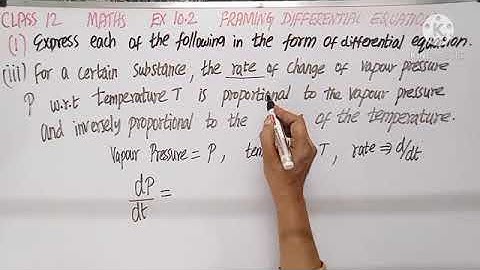 CLASS 12 MATHS EX 10.2 FRAMING DIFFERENTIAL EQUATION
(1) Express each of the following in the form of differential equation.
(iii) For a certain substance, the rate of change of vapour pressure
P w.r.t temperature T is proportional to the vapour pressure
and inversely proportional to the of the temperature.
Vapour Pressure = P, T, rate ⇒ d/dt
dP/dt =